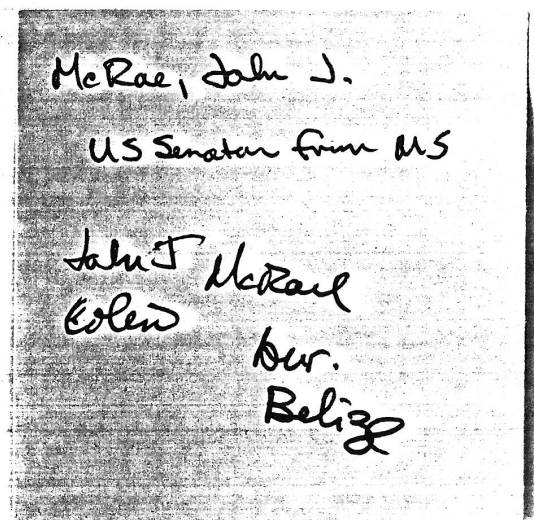 McRae, John J.
US Senator from MS
John J McRae
bur.
Belize